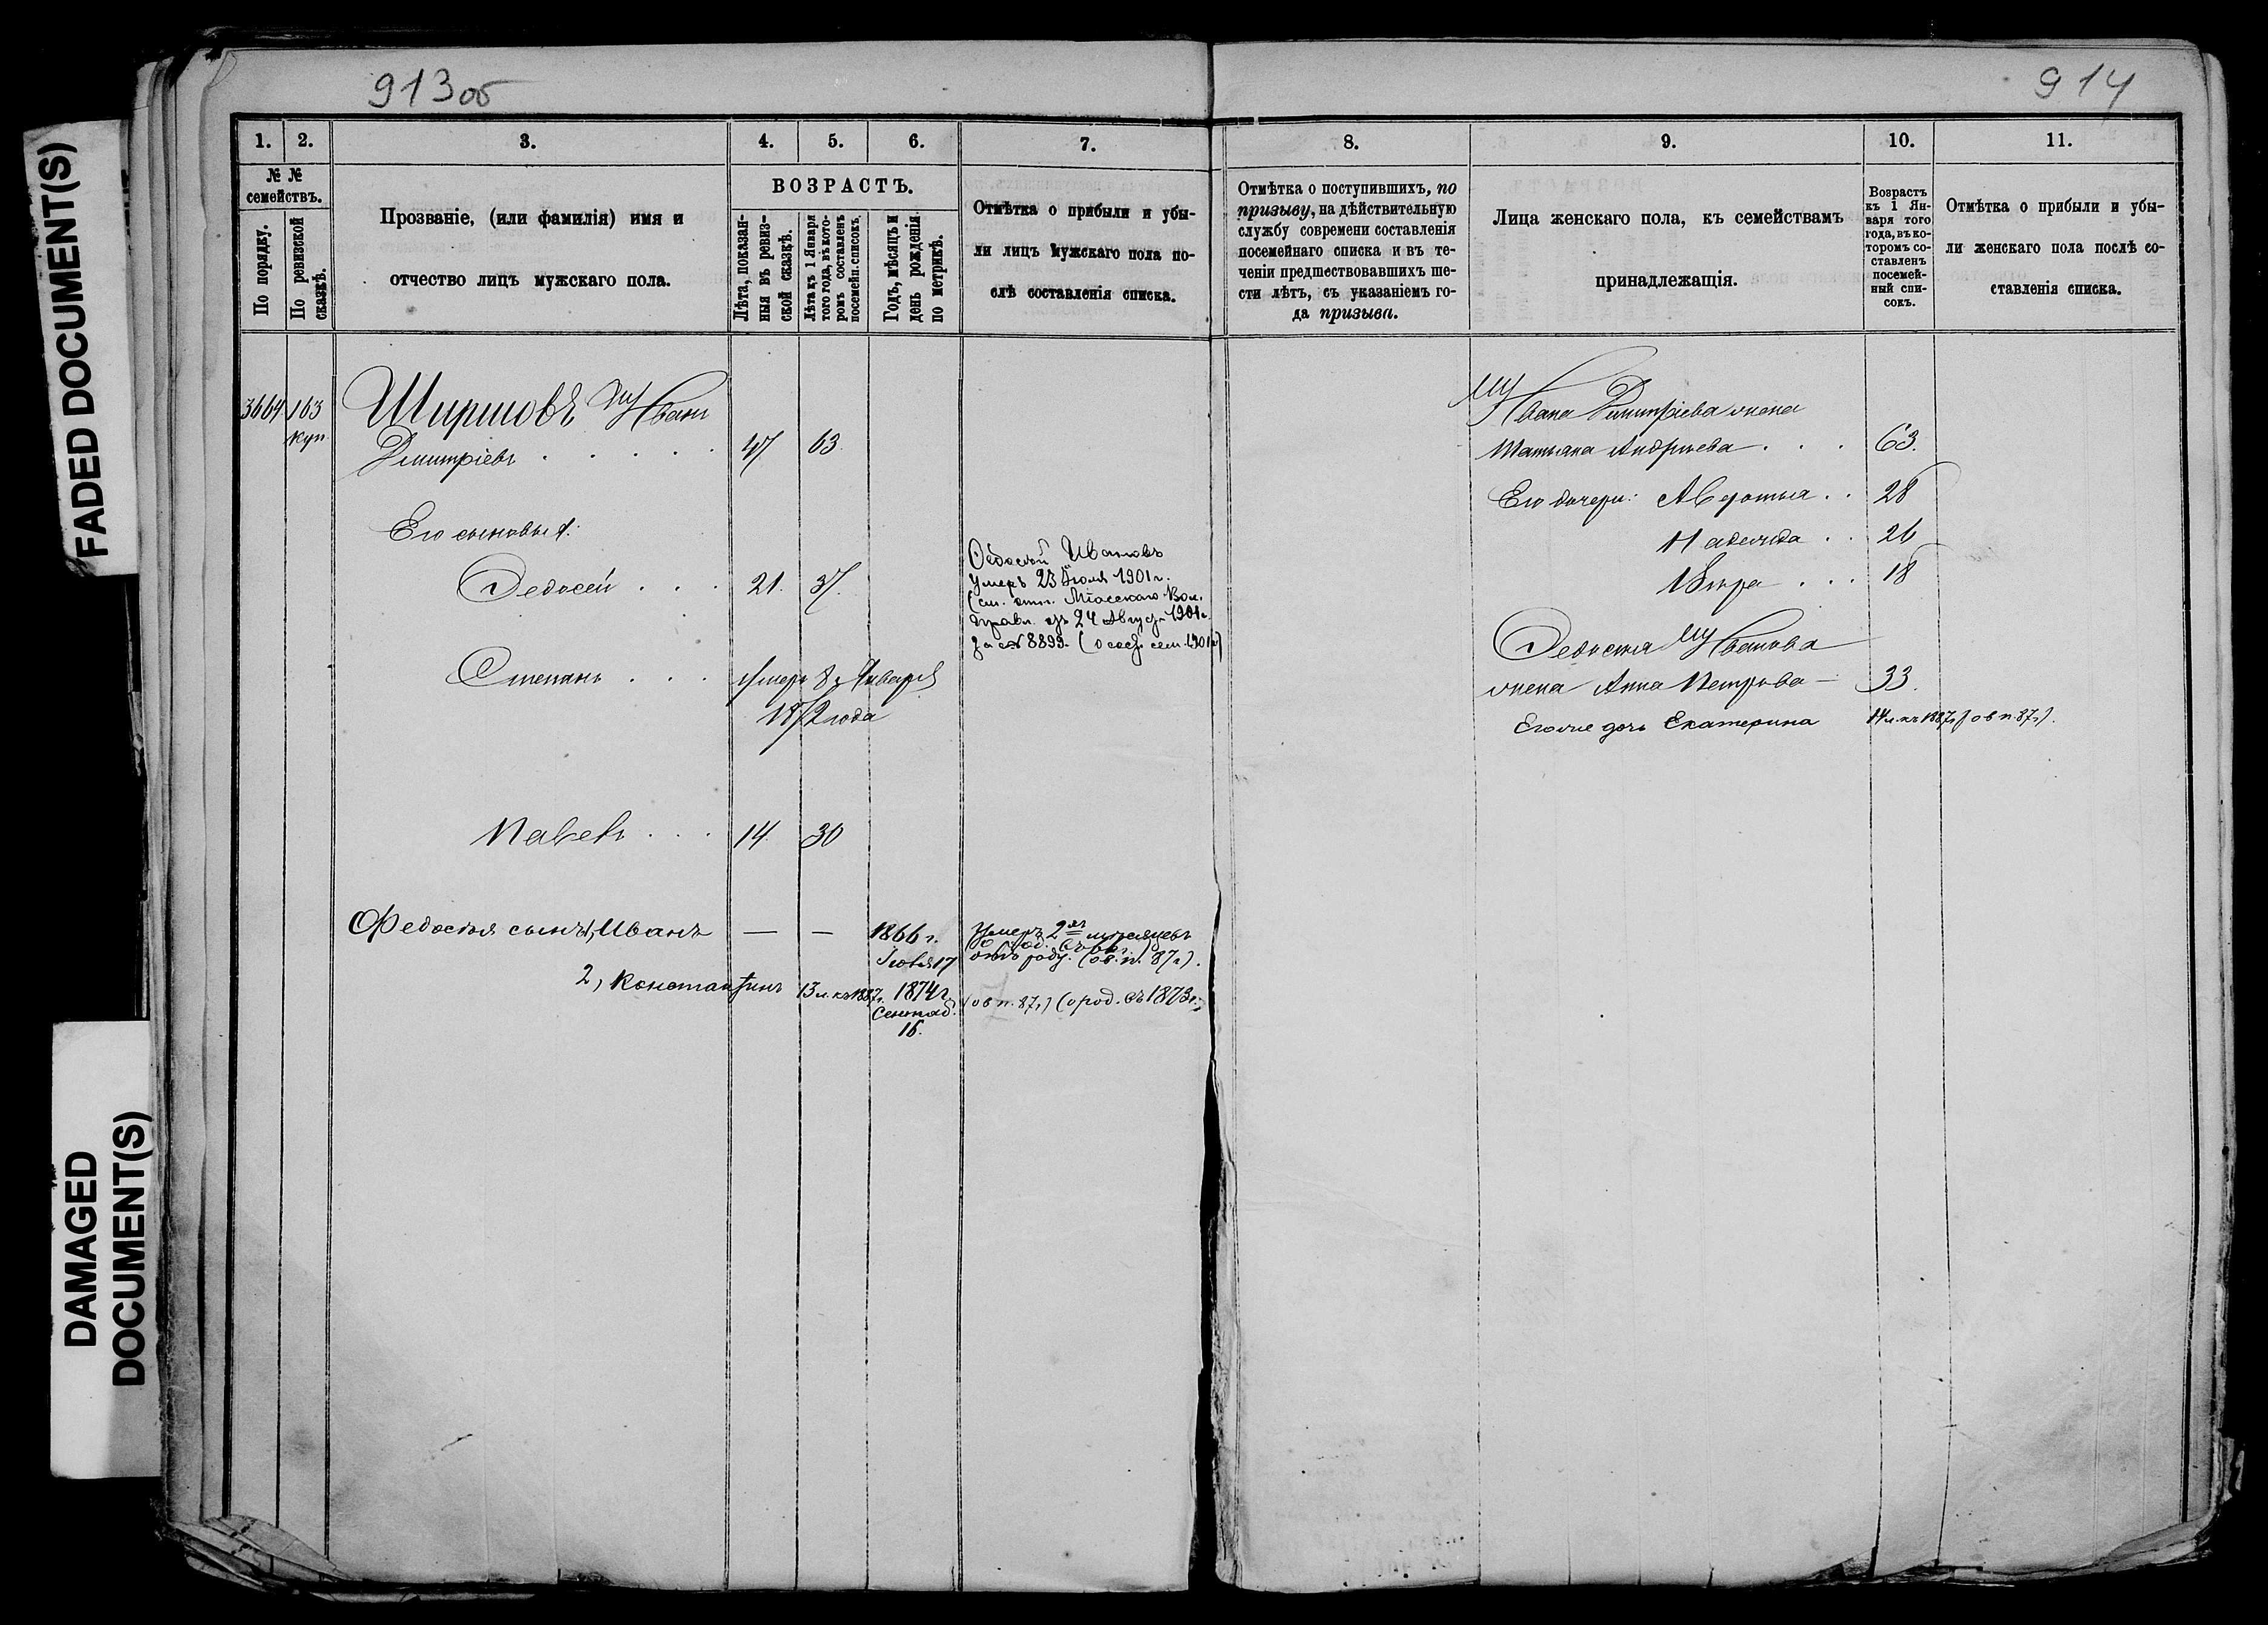 913 об
914
FADED DOCUMENT(S)
DAMAGED
DOCUMENT(S)
1. 2. 3. 4. 5. 6. 7.
№ №
семействъ.
По порядку.
По ревизской
сказкѣ.
Прозваніе, (или фамилія) имя и
отчество лицъ мужскаго пола.
ВОЗРАСТЪ.
Лѣта, показан-
ныя въ ревиз-
ской сказкѣ.
Лѣта къ 1 Января
того года, въ кото-
ромъ составленъ
посемейн. списокъ.
Годъ, мѣсяцъ и
день рожденія
по метрикѣ.
Отмѣтка о прибыли и убы-
ли лицъ мужскаго пола по-
слѣ составленія списка.
3664 103
куп.
Ширшовъ Иванъ
Дмитріевъ . . . . . 47 63.
Его сыновья:
Ѳедосей . . . 21. 37.
Ѳедосѣй Ивановъ
умеръ 23 Іюля 1901 г.
(см. отн. Міасскаго Вол.
Правл. отъ 24 Август. 1901 г.
за № 8899. ( сем. 1901 г)
Степанъ . . . умеръ 8 Января
1872 года
Павелъ . . . 14. 30
Ѳедосѣя сынъ 1, Иванъ — — 1866 г.
17
Умеръ 2хъ мѣсяцевъ
отъ роду. (ов. п. 87 г).
2, Константинъ 13 л. къ 1887 г. 1874 г.
Сентяб.
16.
(ов п. 87 г) (о род. съ 1873 г.)
8. 9. 10. 11.
Отмѣтка о поступившихъ, по
призыву, на дѣйствительную
службу современи составленія
посемейнаго списка и въ те-
ченіи предшествовавшихъ ше-
сти лѣтъ, съ указаніемъ го-
да призыва.
Лица женскаго пола, къ семействамъ
принадлежащія.
Возрастъ
къ 1 Ян-
варя того
года, въ ко-
торомъ со-
ставленъ
посемей-
ный спи-
сокъ.
Отмѣтка о прибыли и убы-
ли женскаго пола послѣ со-
ставленія списка.
Ивана Димитріева жена
Татьяна Андреева . . . 63.
Его дочери: Авдотья . . 28
Надежда . . 26
Вѣра . . . 18
Ѳедосѣя Иванова
жена Анна Петрова — 33.
Его же дочь Екатерина 14 л. къ 1887 г. (ов п. 87 г).